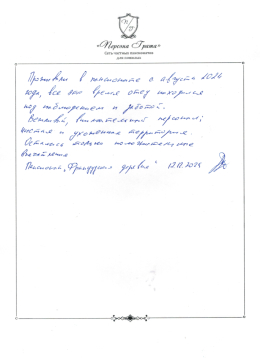 «Персона Грата»
Сеть частных пансионатов
для пожилых
Проживали в пансионате с августа 2024
года, все это время отец находился
под наблюдением и заботой.
Вежливый, внимательный персонал;
чистая и ухоженная территория.
Остались только положительные
впечатления
Пансионат „Французская деревня" 12.12.2024